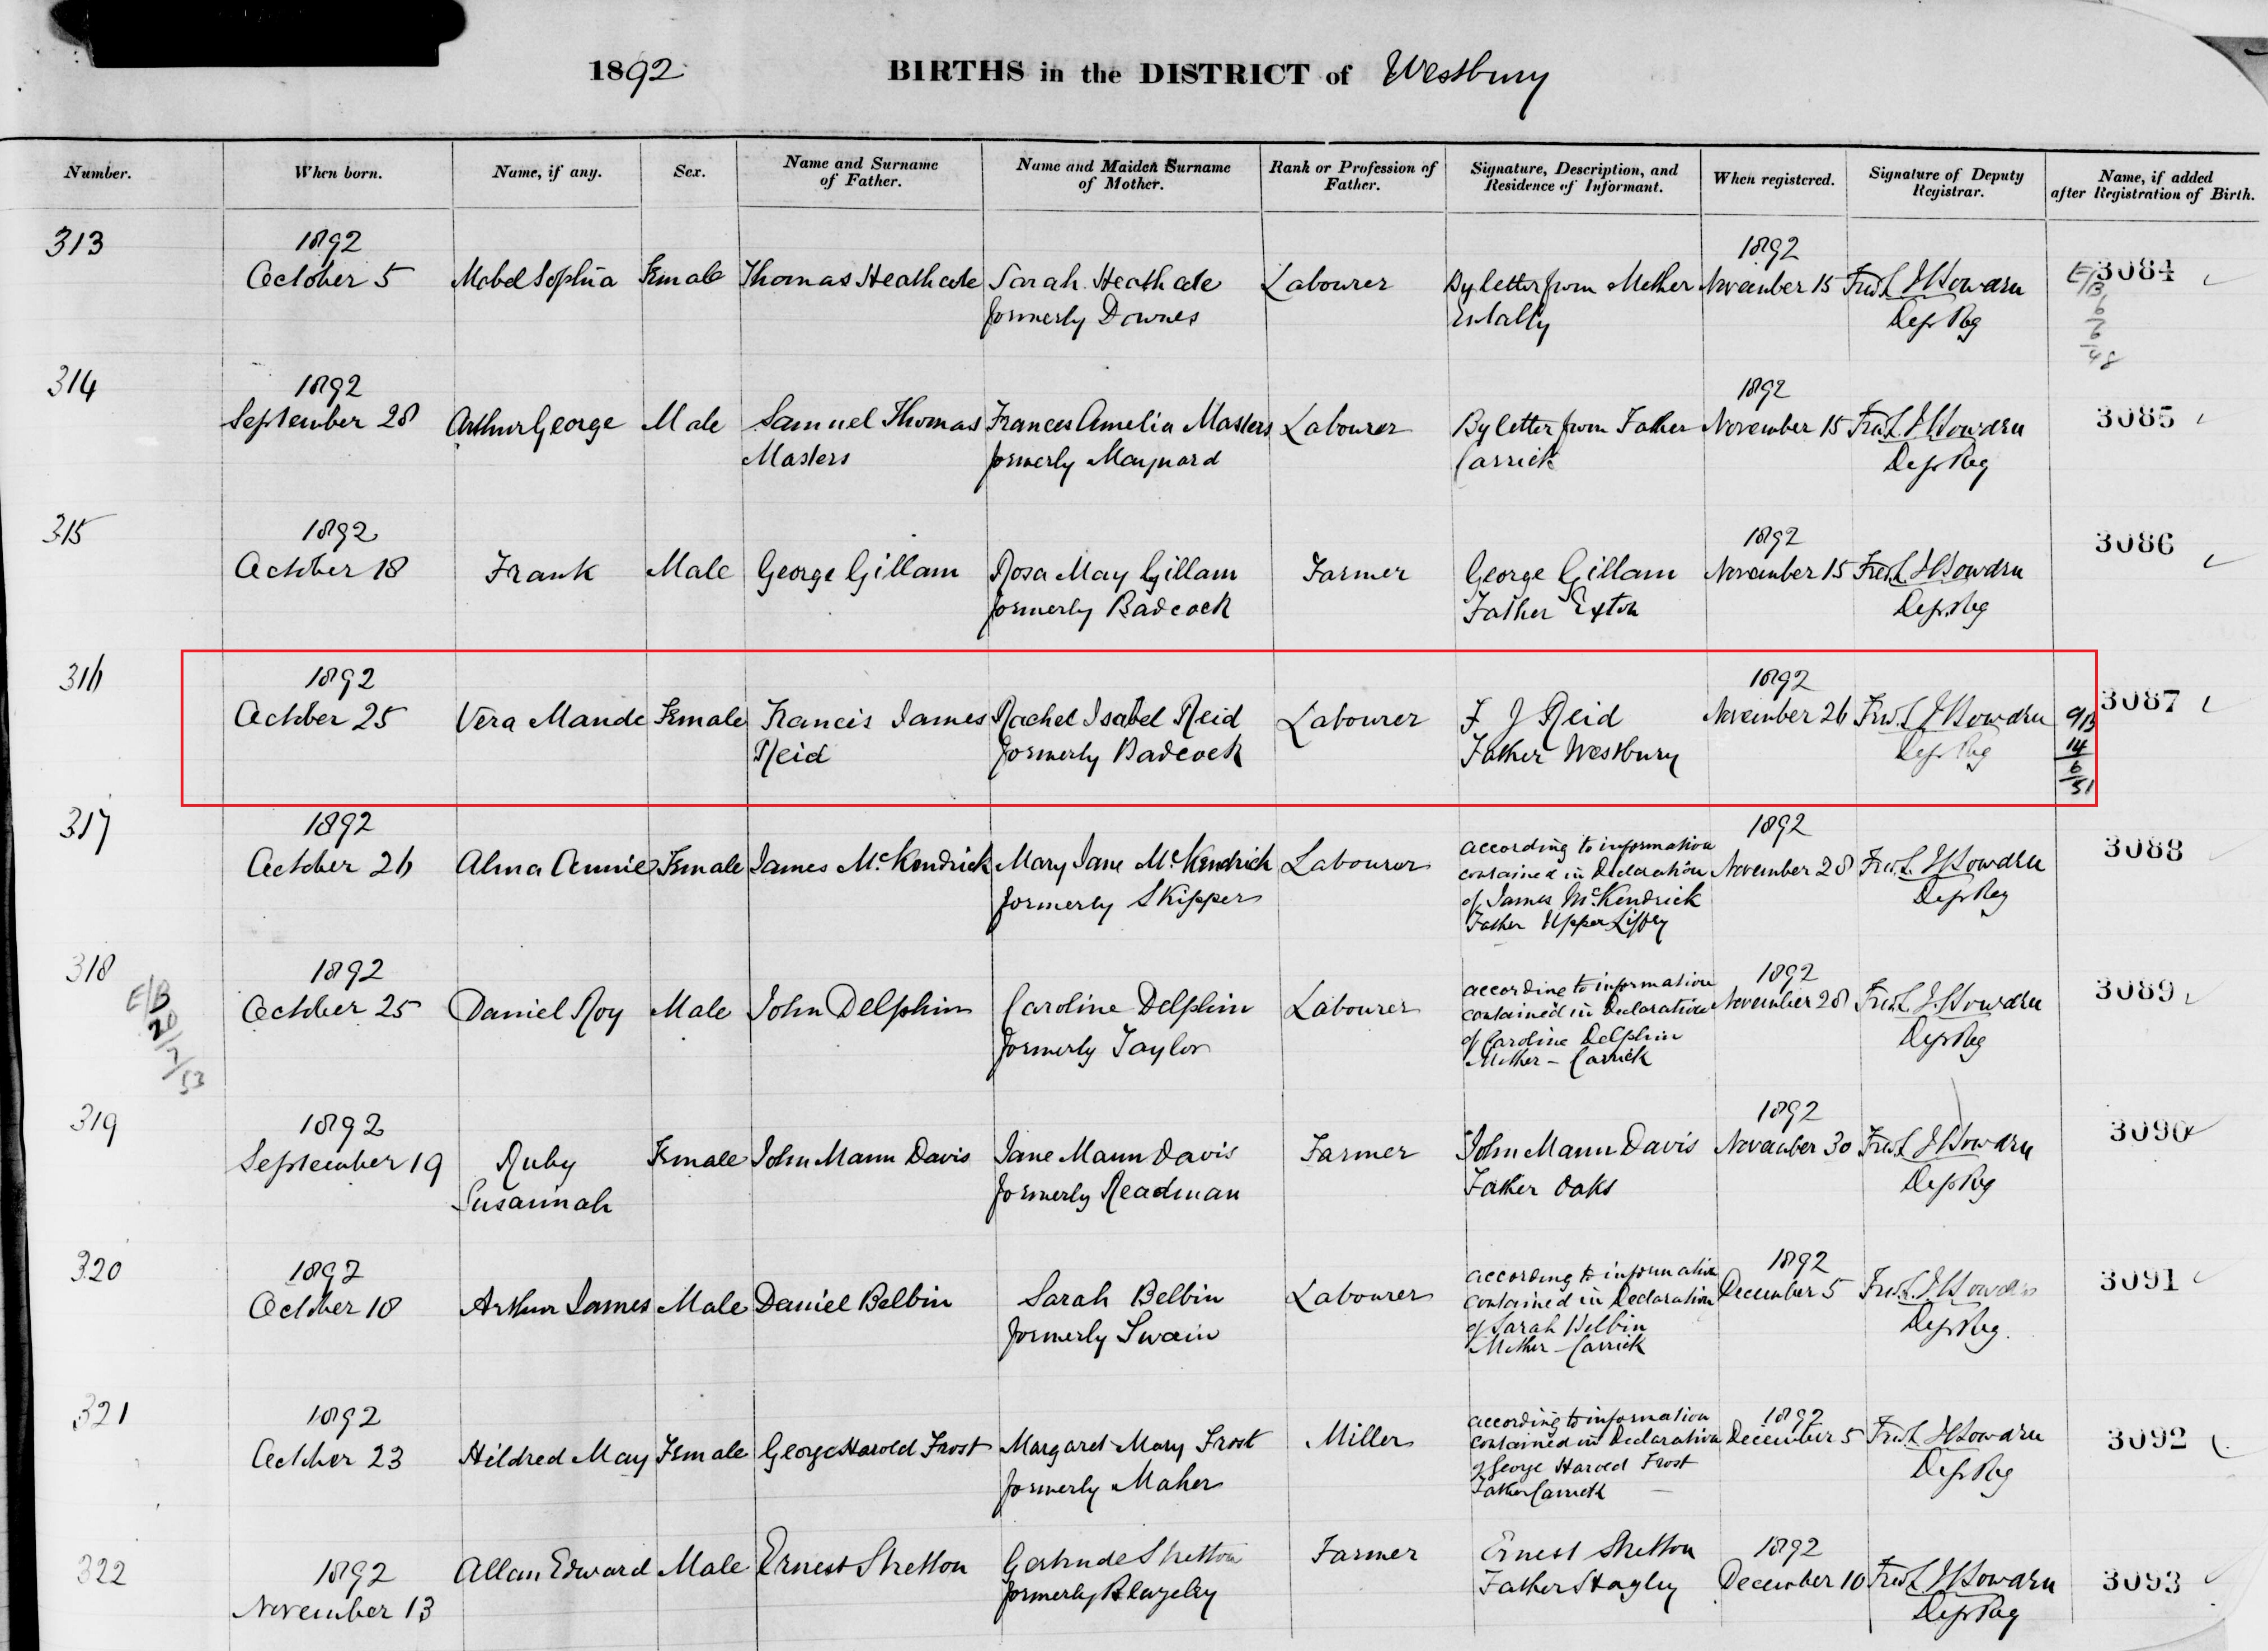 1892 BIRTHS in the DISTRICT of Westbury
Number. When born. Name, if any. Sex. Name and Surname of Father. Name and Maiden Surname of Mother. Rank or Profession of Father. Signature, Description, and Residence of Informant. When registered. Signature of Deputy Registrar. Name, if added after Registration of Birth.
313 1892 1892
October 5 Mabel Sophia Female Thomas Heathcote Sarah Heathcote Labourer By letter from Mother November 15 E/B 3084
formerly Downes Dep Reg
6
6
48
314 1892 1892
September 28 Arthur George Male Samuel Thomas Frances Amelia Masters Labourer By letter from Father November 15 3085
Masters formerly Maynard Carrick Dep Reg
315 1892 1892 3086
October 18 Frank Male George Gillam Rosa May Gillam Farmer George Gillam November 15
formerly Badcock Father Exton Dep Reg
316 1892 1892
October 25 Vera Maude Female Francis James Rachel Isabel Reid Labourer F J Reid November 26 3087
Reid formerly Badcock Father Westbury Dep Reg 14
6
51
317 1892 1892
October 26 Alma Annie Female James McKendrick Mary Jane McKendrick Labourer according to information November 28 3088
formerly Skipper contained in Declaration Dep Reg
of James McKendrick
Father Upper Liffey
318 1892 1892
E/B October 25 Daniel Roy Male John Delphin Caroline Delphin Labourer according to information November 28 3089
20/7/53 formerly Taylor contained in Declaration Dep Reg
of Caroline Delphin
Mother - Carrick
319 1892 1892
September 19 Ruby Female John Mann Davis Jane Mann Davis Farmer John Mann Davis November 30 3090
Susannah formerly Readman Father Oaks Dep Reg
320 1892 1892
October 18 Arthur James Male Daniel Belbin Sarah Belbin Labourer according to information December 5 3091
formerly Swain contained in Declaration Dep Reg.
of Sarah Belbin
Mother - Carrick
321 1892 1892
October 23 Hildred May Female George Harold Frost Margaret Mary Frost Miller according to information December 5 3092
formerly Maher contained in Declaration Dep Reg
of George Harold Frost
Father Carrick
322 1892 Allan Edward Male Ernest Shelton Gertrude Shelton Farmer Ernest Shelton 1892 3093
November 13 formerly Blazeley Father December 10 Dep Reg